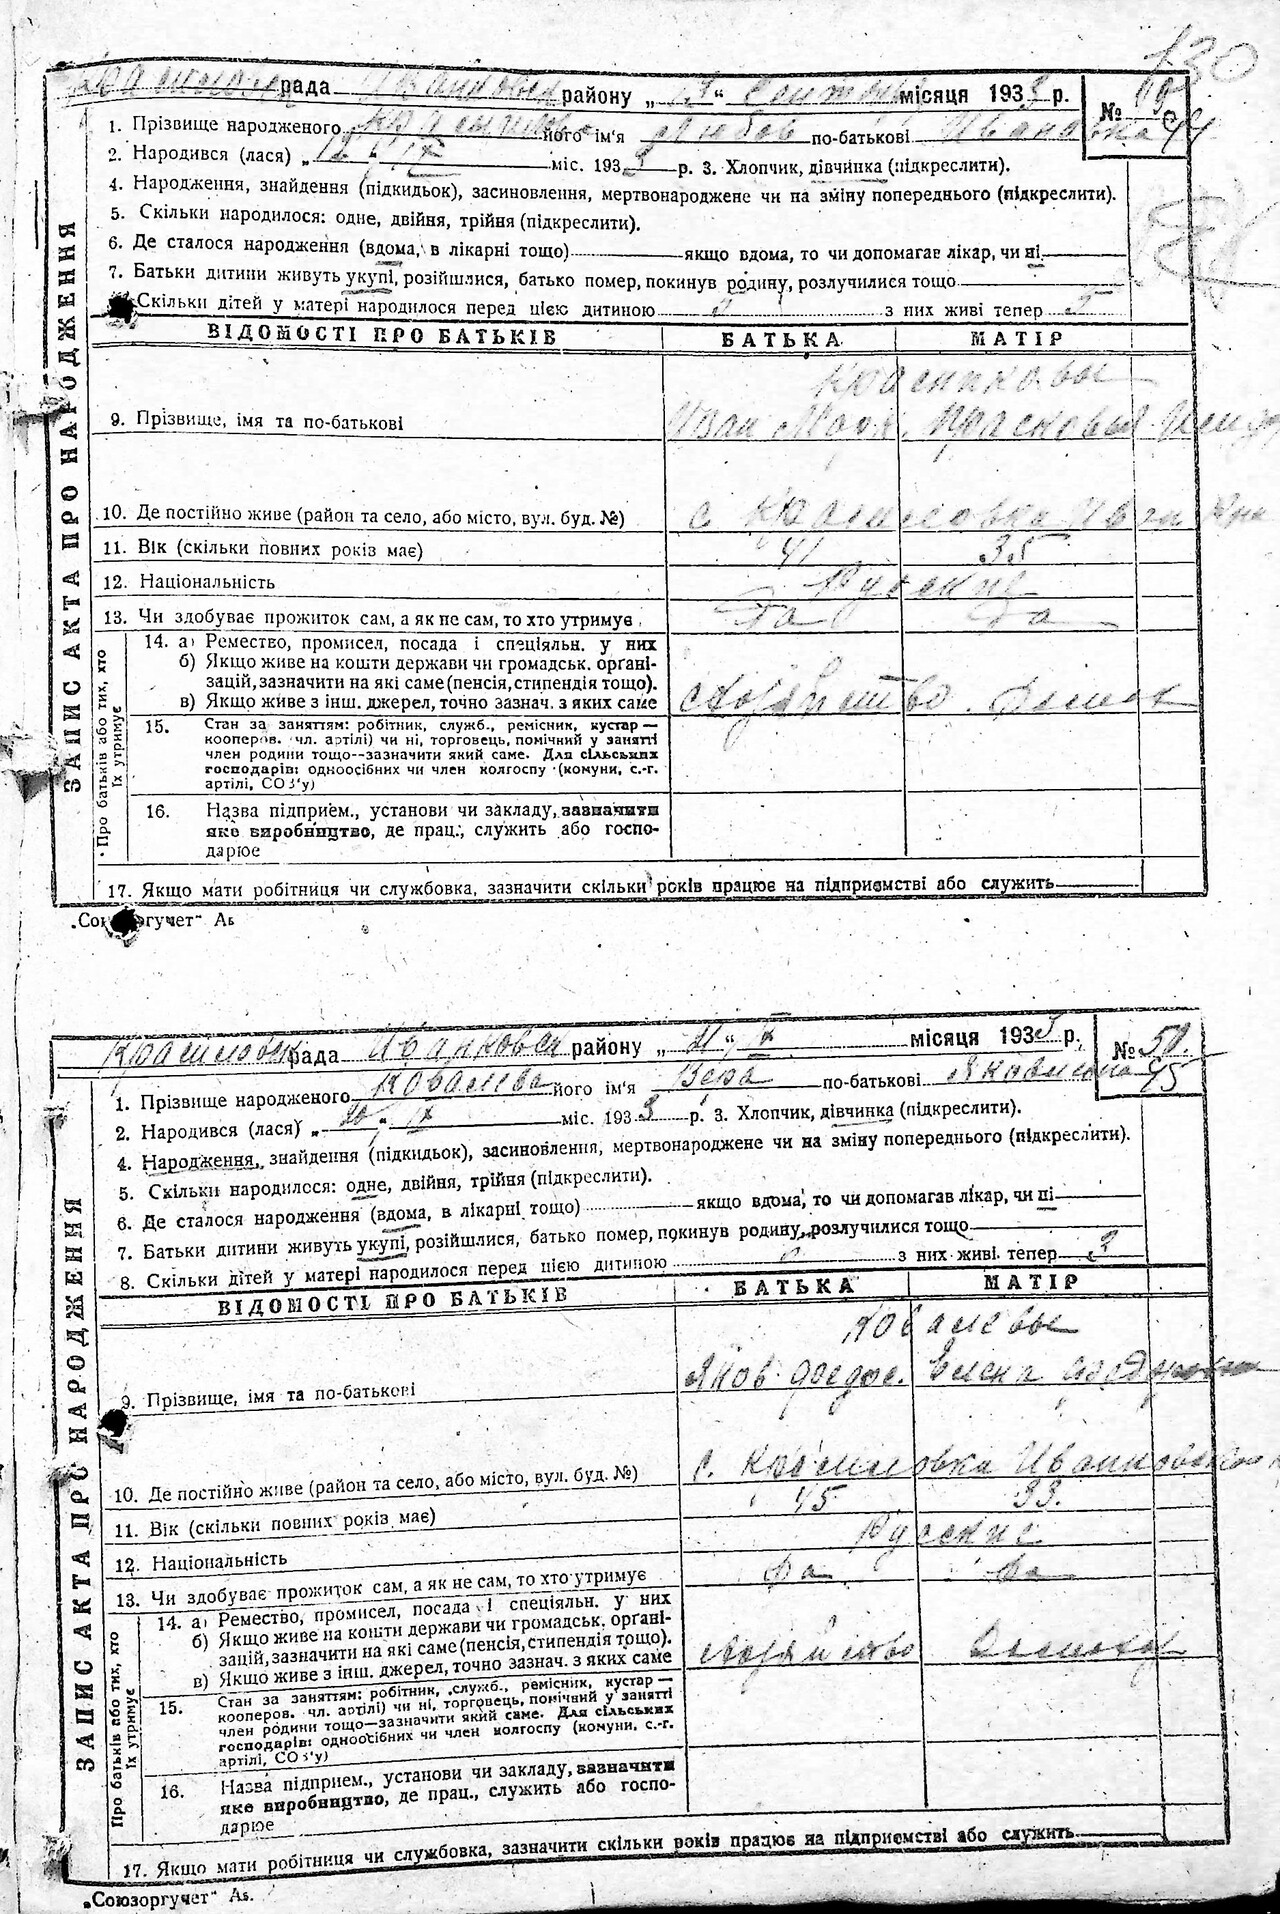 130
рада Иванковск району „ 19 “ Сентябр місяця 1933 р. №
1. Прізвище народженого його ім'я Любов по-батькові Ивановна 44
2. Народився (лася) „ 12 “ IX міс. 1933 р. 3. Хлопчик, дівчинка (підкреслити).
4. Народження, знайдення (підкидьок), засиновлення, мертвонароджене чи на зміну попереднього (підкреслити).
5. Скільки народилося: одне, двійня, трійня (підкреслити).
6. Де сталося народження (вдома, в лікарні тощо) якщо вдома, то чи допомагав лікар, чи ні.
7. Батьки дитини живуть укупі, розійшлися, батько помер, покинув родину, розлучилися тощо
Скільки дітей у матері народилося перед цією дитиною 5 з них живі тепер 5
ВІДОМОСТІ ПРО БАТЬКІВ БАТЬКА МАТІР
Красиковы
9. Прізвище, імя та по-батькові Иван Марк. Прасковья
10. Де постійно живе (район та село, або місто, вул. буд. №) с. Красиловка Иван
11. Вік (скільки повних років має) 41 35
12. Національність Русские
13. Чи здобуває прожиток сам, а як не сам, то хто утримує Да Да
14. а) Ремество, промисел, посада і спеціяльн. у них
б) Якщо живе на кошти держави чи громадськ. орґані-
зацій, зазначити на які саме (пенсія, стипендія тощо).
в) Якщо живе з інш. джерел, точно зазнач. з яких саме Хозяйство Домох
15. Стан за заняттям: робітник, служб., ремісник, кустар —
кооперов. чл. артілі) чи ні, торговець, помічний у занятті
член родини тощо—зазначити який саме. Для сільських
господарів: одноосібних чи член колгоспу (комуни, с.-г.
артілі, СОЗ'у)
16. Назва підприєм., установи чи закладу, зазначити
яке виробництво, де прац., служить або госпо-
дарює
17. Якщо мати робітниця чи службовка, зазначити скільки років працює на підприємстві або служить
ЗАПИС АКТА ПРО НАРОДЖЕННЯ
Про батьків або тих, хто
їх утримує
„Союзоргучет“ Аъ
Красиловск рада Иванковск району „ 21 “ IX місяця 1933 р. № 50
1. Прізвище народженого Ковалева його ім'я Вера по-батькові Яковлевна 45
2. Народився (лася) „ 20 “ IX міс. 1933 р. 3. Хлопчик, дівчинка (підкреслити).
4. Народження, знайдення (підкидьок), засиновлення, мертвонароджене чи на зміну попереднього (підкреслити).
5. Скільки народилося: одне, двійня, трійня (підкреслити).
6. Де сталося народження (вдома, в лікарні тощо) якщо вдома, то чи допомагав лікар, чи ні
7. Батьки дитини живуть укупі, розійшлися, батько помер, покинув родину, розлучилися тощо
8. Скільки дітей у матері народилося перед цією дитиною з них живі тепер 2
ВІДОМОСТІ ПРО БАТЬКІВ БАТЬКА МАТІР
Ковалевы
9. Прізвище, імя та по-батькові Яков Федос. Елена
10. Де постійно живе (район та село, або місто, вул. буд. №) с. Красиловка Иванковского
11. Вік (скільки повних років має) 45 33.
12. Національність Русские
13. Чи здобуває прожиток сам, а як не сам, то хто утримує Да Да
14. а) Ремество, промисел, посада і спеціяльн. у них
б) Якщо живе на кошти держави чи громадськ. орґані-
зацій, зазначити на які саме (пенсія, стипендія тощо).
в) Якщо живе з інш. джерел, точно зазнач. з яких саме Хозяйство Домохоз
15. Стан за заняттям: робітник, служб., ремісник, кустар —
кооперов. чл. артілі) чи ні, торговець, помічний у занятті
член родини тощо—зазначити який саме. Для сільських
господарів: одноосібних чи член колгоспу (комуни, с.-г.
артілі, СОЗ'у)
16. Назва підприєм., установи чи закладу, зазначити
яке виробництво, де прац., служить або госпо-
дарює
17. Якщо мати робітниця чи службовка, зазначити скільки років працює на підприємстві або служить
ЗАПИС АКТА ПРО НАРОДЖЕННЯ
Про батьків або тих, хто
їх утримує
„Союзоргучет“ Аъ.